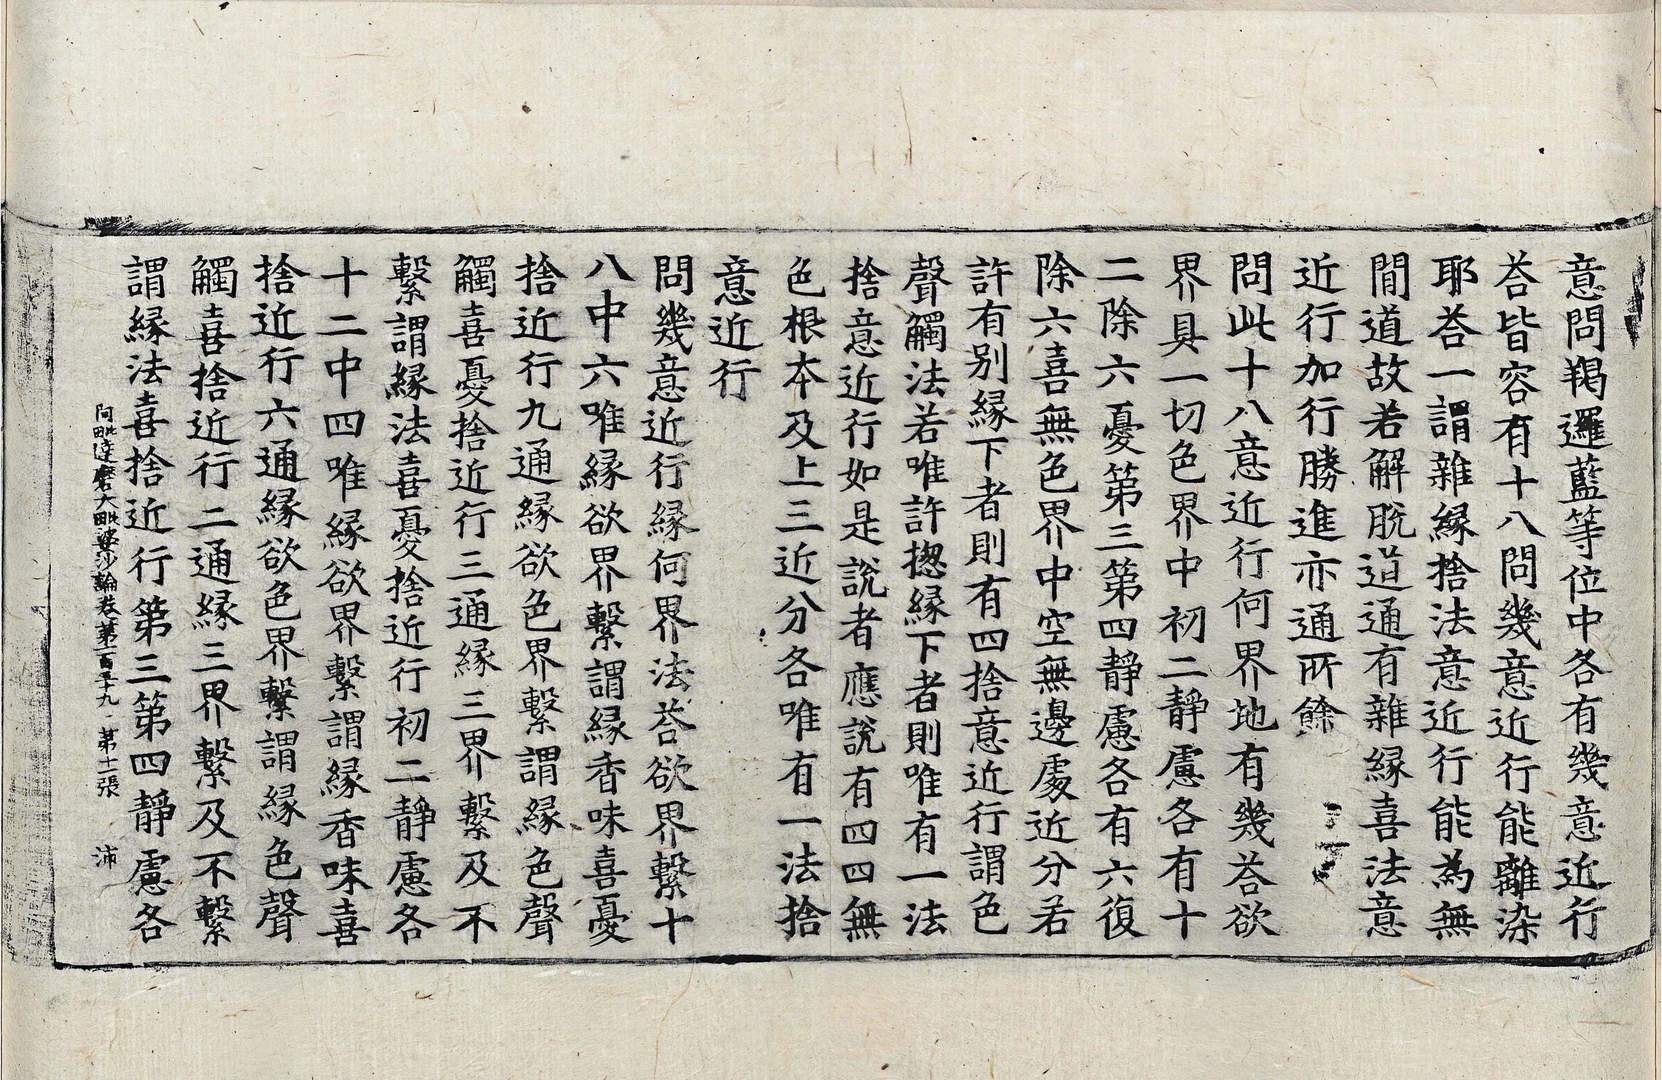 意問羯邏藍等位中各有幾意近行
荅皆容有十八問幾意近行能離染
耶荅一謂雜縁捨法意近行能為無
閒道故若解脫道通有雜縁喜法意
近行加行勝進亦通所餘
問此十八意近行何界地有幾荅欲
界具一切色界中初二靜慮各有十
二除六憂第三第四靜慮各有六復
除六喜無色界中空無邊處近分若
許有别縁下者則有四捨意近行謂色
聲觸法若唯許揔縁下者則唯有一法
捨意近行如是說者應說有四四無
色根本及上三近分各唯有一法捨
意近行
問幾意近行縁何界法荅欲界繫十
八中六唯縁欲界繫謂縁香味喜憂
捨近行九通縁欲色界繫謂縁色聲
觸喜憂捨近行三通縁三界繫及不
繫謂縁法喜憂捨近行初二靜慮各
十二中四唯縁欲界繫謂縁香味喜
捨近行六通縁欲色界繫謂縁色聲
觸喜捨近行二通縁三界繫及不繫
謂縁法喜捨近行第三第四靜慮各
阿毗達磨大毗婆沙論卷第一百三十九 第十二張 沛